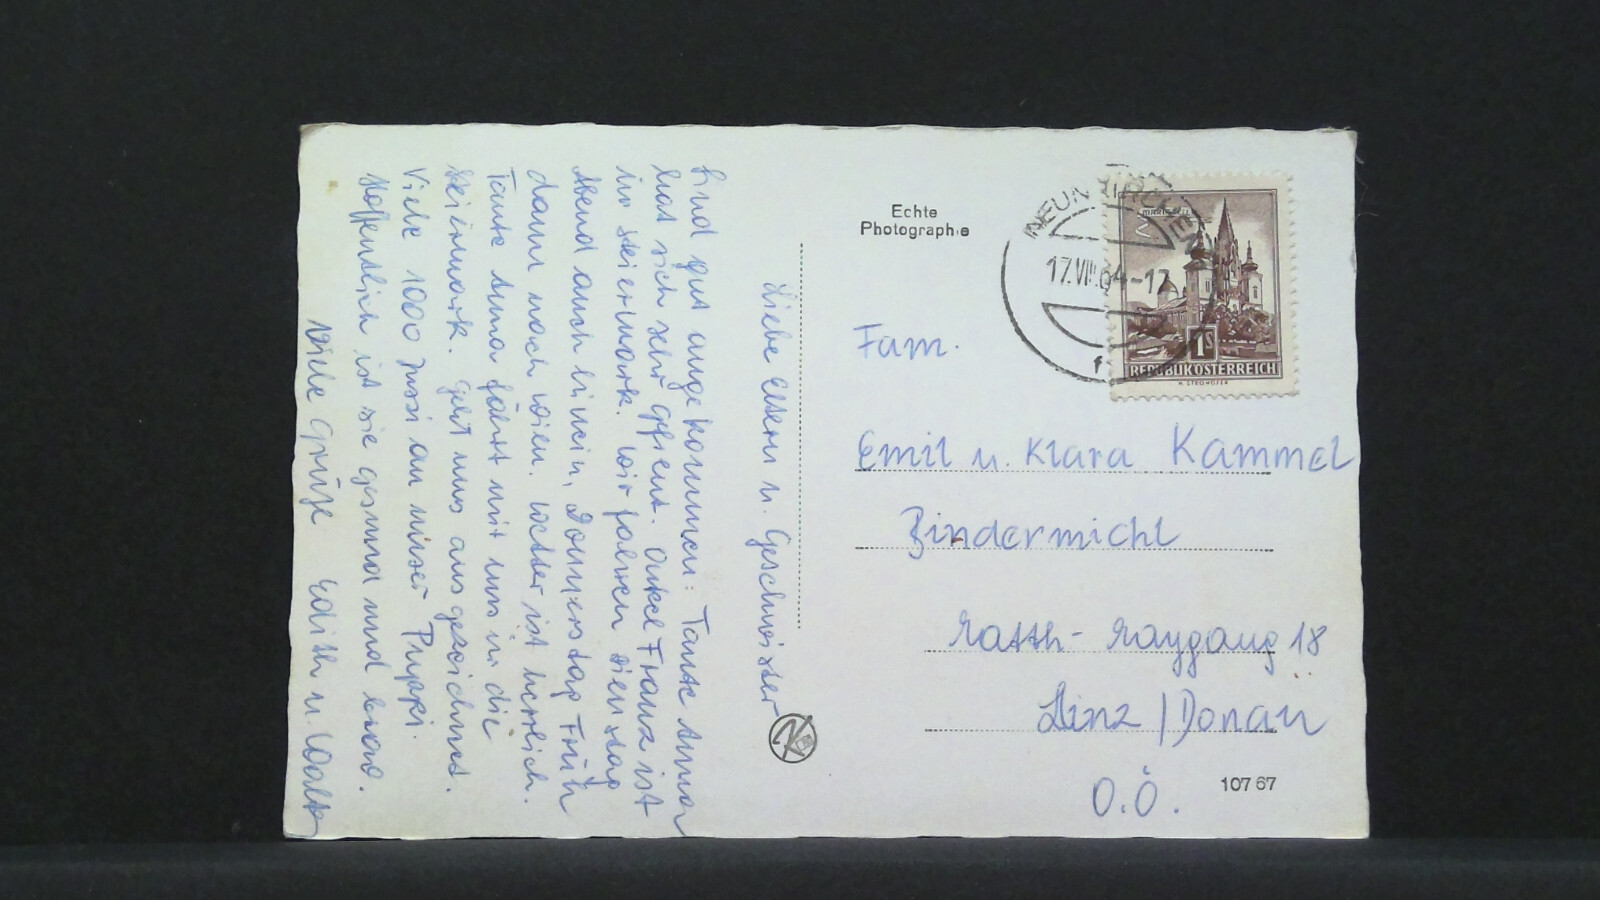 Liebe Eltern u. Geschwister
Sind gut angekommen: Tante Anna
hat sich sehr gefreut. Onkel Franz ist
in Steiermark. Wir fahren Dienstag
Abend auch hinein, Donnerstag Früh
dann nach Wien. Wetter ist herrlich.
Tante Anna fährt mit uns in die
Steiermark. Geht uns ausgezeichnet.
Viele 1000 Bussi an unser Puppi.
Hoffentlich ist sie gesund und brav.
Viele Grüße Edith u. Walter
Echte
Photographie
NEUNKIRCHEN
17.VIII.64-17
f
MARIAZELL
1S
REPUBLIK ÖSTERREICH
H. STROHOFER
Fam.
Emil u. Klara Kammel
Bindermichl
Ratth-
18
Linz / Donau
O.Ö.
107 67